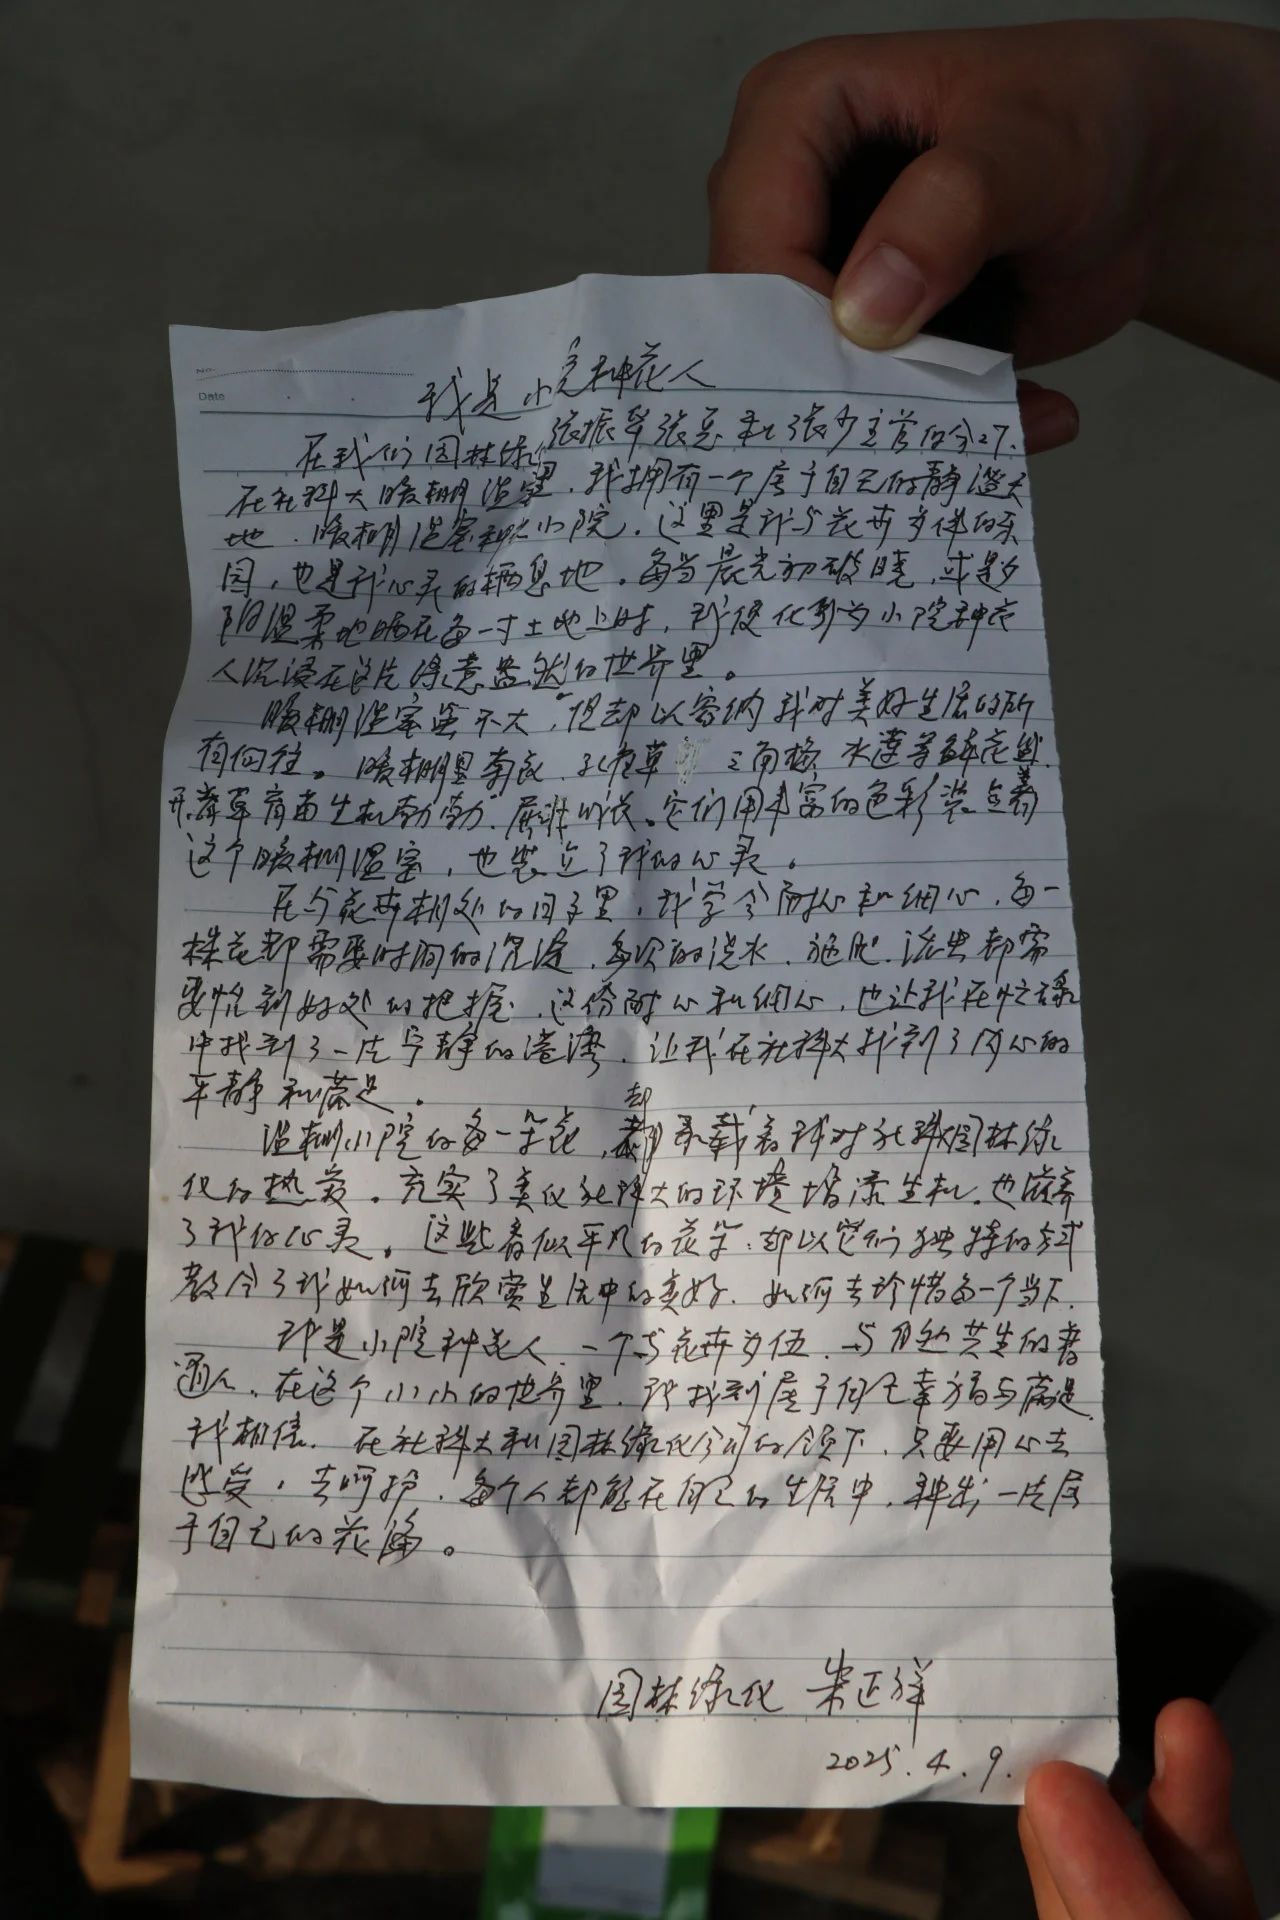 No.
Date
我是小院种花人
在我们园林绿化张振华张总和张少主管的分工.
在社科大暖棚温室，我拥有一个属于自己的静谧天
地，暖棚温室和小院，这里是我与花卉多样的乐
园，也是我心灵的栖息地，每当晨光初破晓，或是夕
阳温柔地晒在每一寸土地上时，我便化身为小院种花
人沉浸在这片绿意盎然的世界里。
暖棚温室虽不大，但却以容纳我对美好生活的所
有向往。暖棚里 孔雀草 三角梅 水莲等鲜花
草 生机勃勃. 它们用丰富的色彩装点着
这个暖棚温室，也装点了我的心灵。
在与花卉相处的日子里，我学会耐心和细心，每一
株花都需要时间的沉淀，每次的浇水、施肥、治虫都需
要恰到好处的把握，这份耐心和细心，也让我在忙碌
中找到了一片宁静的港湾，让我在社科大找到了内心的
平静和满足。
温棚小院的每一朵花，却承载着我对社科大园林绿
化的热爱。充实了美化社科大的环境增添生机，也滋养
了我的心灵。这些看似平凡的花朵，却以它们独特的方式
教会了我如何去欣赏生活中的美好，如何去珍惜每一个当下.
我是小院种花人，一个与花卉为伍，与自然共生的普
通人，在这个小小的世界里，我找到属于自己幸福与满足.
我相信，在社科大和园林绿化公司的领下，只要用心去
感受，去呵护，每个人都能在自己的生活中，种出一片属
于自己的花海。
园林绿化 柴正祥
2025.4.9.